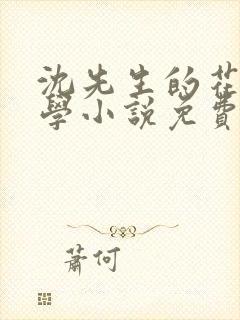 沈先生的花
學小說免費
蕭何